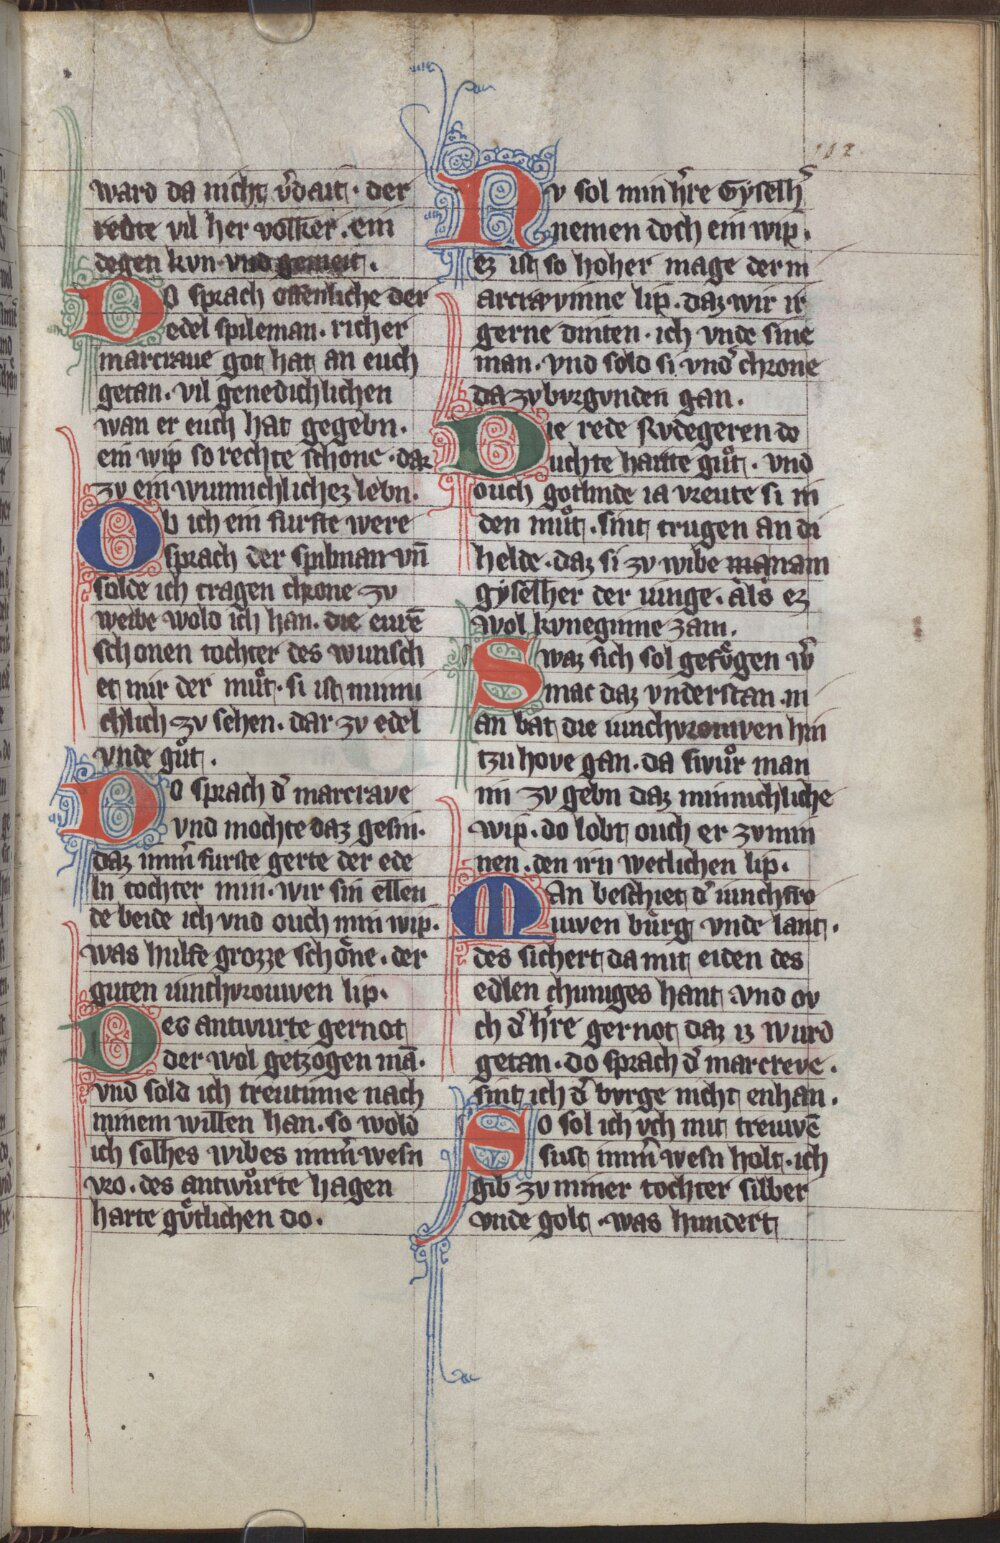 102
ward da nicht v̓dait · der
redte vil her volker · ein
degen kvn vnd gemeit ·
Do sprach offenliche der
edel spileman · richer
marcraue got hat an euch
getan · vil genedichlichen
wan er euch hat gegebn ·
ein wip so rechte schone · daz
zv ein wunnichlichez lebn ·
Ob ich ein furste were
sprach der spilman vn̄
solde ich tragen chrone zv
weibe wold ich han · die eurē
schonen tochter des wunsch
et mir der můt · si ist minni
chlich zv sehen · dar zv edel
vnde gůt ·
Do sprach d̓ marcrave
vnd mochte daz gesin ·
daz im̄m̓ furste gerte der ede
ln tochter min · wir sin ellen
de beide ich vnd ouch min wip ·
was hulfe grozze schöne · der
guten iunchvrouwen lip ·
Des antwurte gernot
der wol getzogen mā ·
vnd sold ich treutinne nach
minem willen han · so wold
ich solhes wibes im̄m̓ wesn
vro · des antwůrte hagen
harte gu̓tlichen do ·
Nv sol min h̓re Gyselh̓
nemen doch ein wip ·
ez ist so hoher mage der m
arcravinne lip · daz wir ir
gerne dinten · ich vnde sine
man · vnd sold si vnd̓ chrone
da zv bvrgvnden gan ·
Die rede Rvdegeren do
duchte harte gůt · vnd
ouch gotlinde ia vreute si in
den můt · sint trugen an di
helde · daz si zv wibe nam
gyselher der iunge · als ez
wol kvneginne zam ·
Swaz sich sol gefu̓gen w̓
mac daz vnderstan · m
an bat die iunchvrouwen hin
tzu hove gan · da swůr man
im zv gebn daz minnichliche
wip · do lobt ouch er zv min
nen · den irn wetlichen lip ·
Man beschiet d̓ iunchfro
uwen bůrg vnde lant ·
des sichert da mit eiden des
edlen chuniges hant vnd ov
ch d̓ h̓re gernot daz iz wurd
getan · do sprach d̓ marcreve ·
sint ich d̓ bvrge nicht enhan ·
So sol ich vch mit treuwē
sust im̄m̓ wesn holt · ich
gib zv miner tochter silber
vnde golt · was hundert